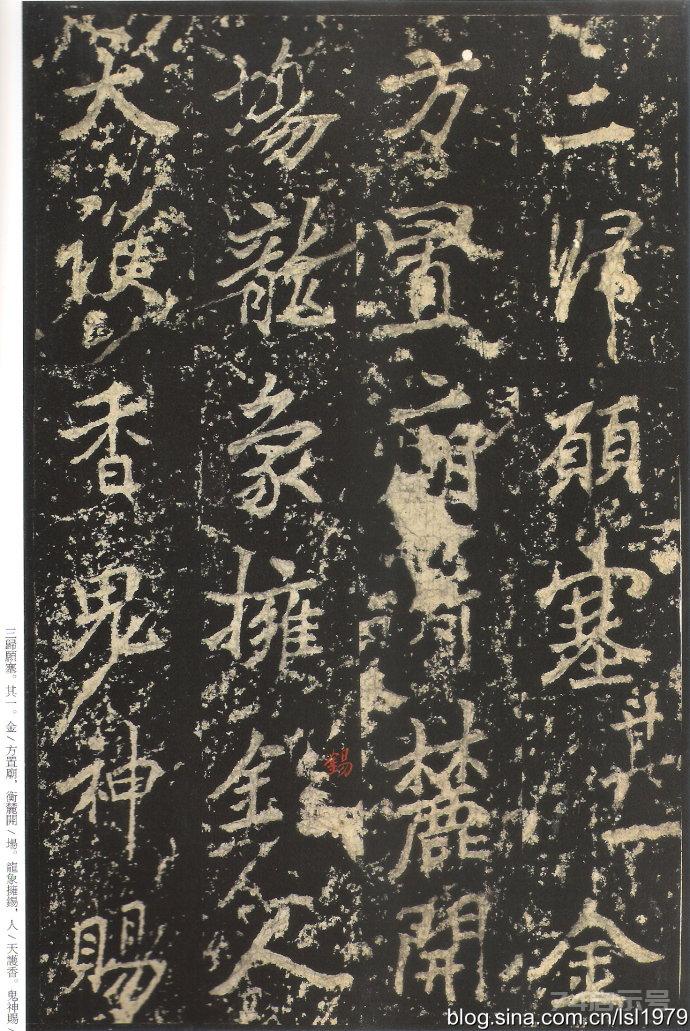 三歸願塞其一金
方置廟麓開
場龍象擁人
錫
天護香鬼神賜
三歸願塞。其一。金/方置廟，衡麓開/場。龍象擁錫，人/天護香。鬼神賜/
blog.sina.com.cn/lsl1979